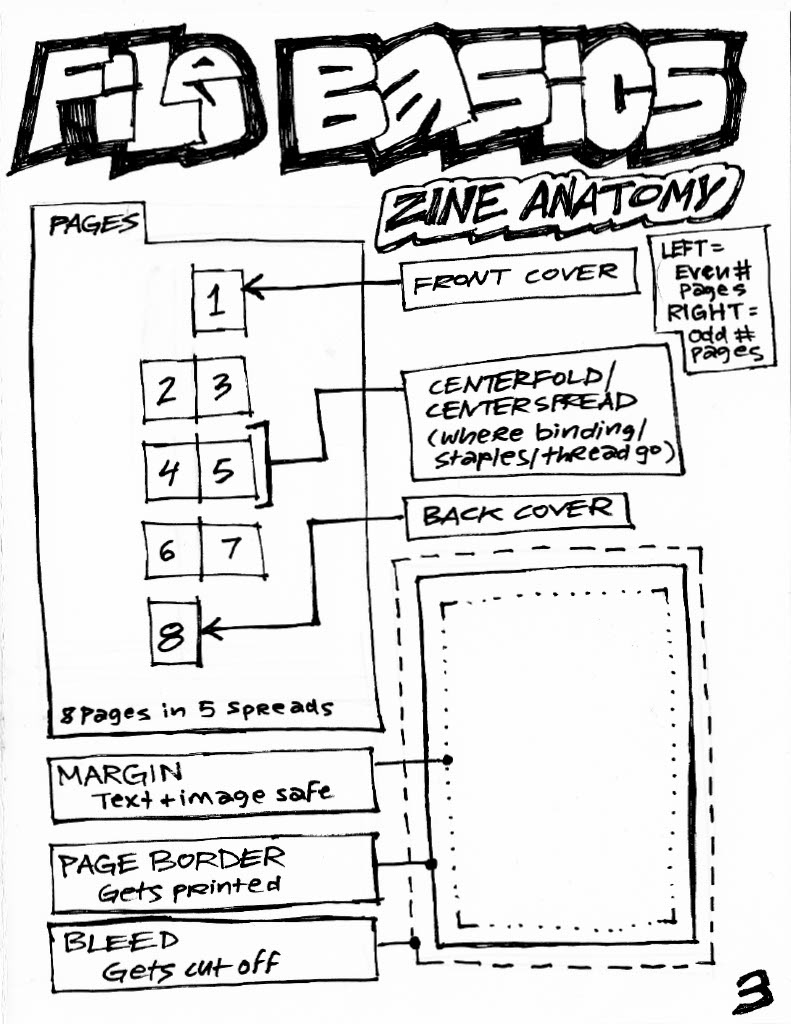 FiLe BasiCS
ZINE ANATOMY
PAGES
1
2 3
4 5
6 7
8
8 Pages in 5 spreads
FRONT COVER
LEFT =
Even #
pages
RIGHT =
odd #
pages
CENTERFOLD/
CENTERSPREAD
(where binding/
staples/thread go)
BACK COVER
MARGIN
Text + image safe
PAGE BORDER
Gets printed
BLEED
Gets cut off
3